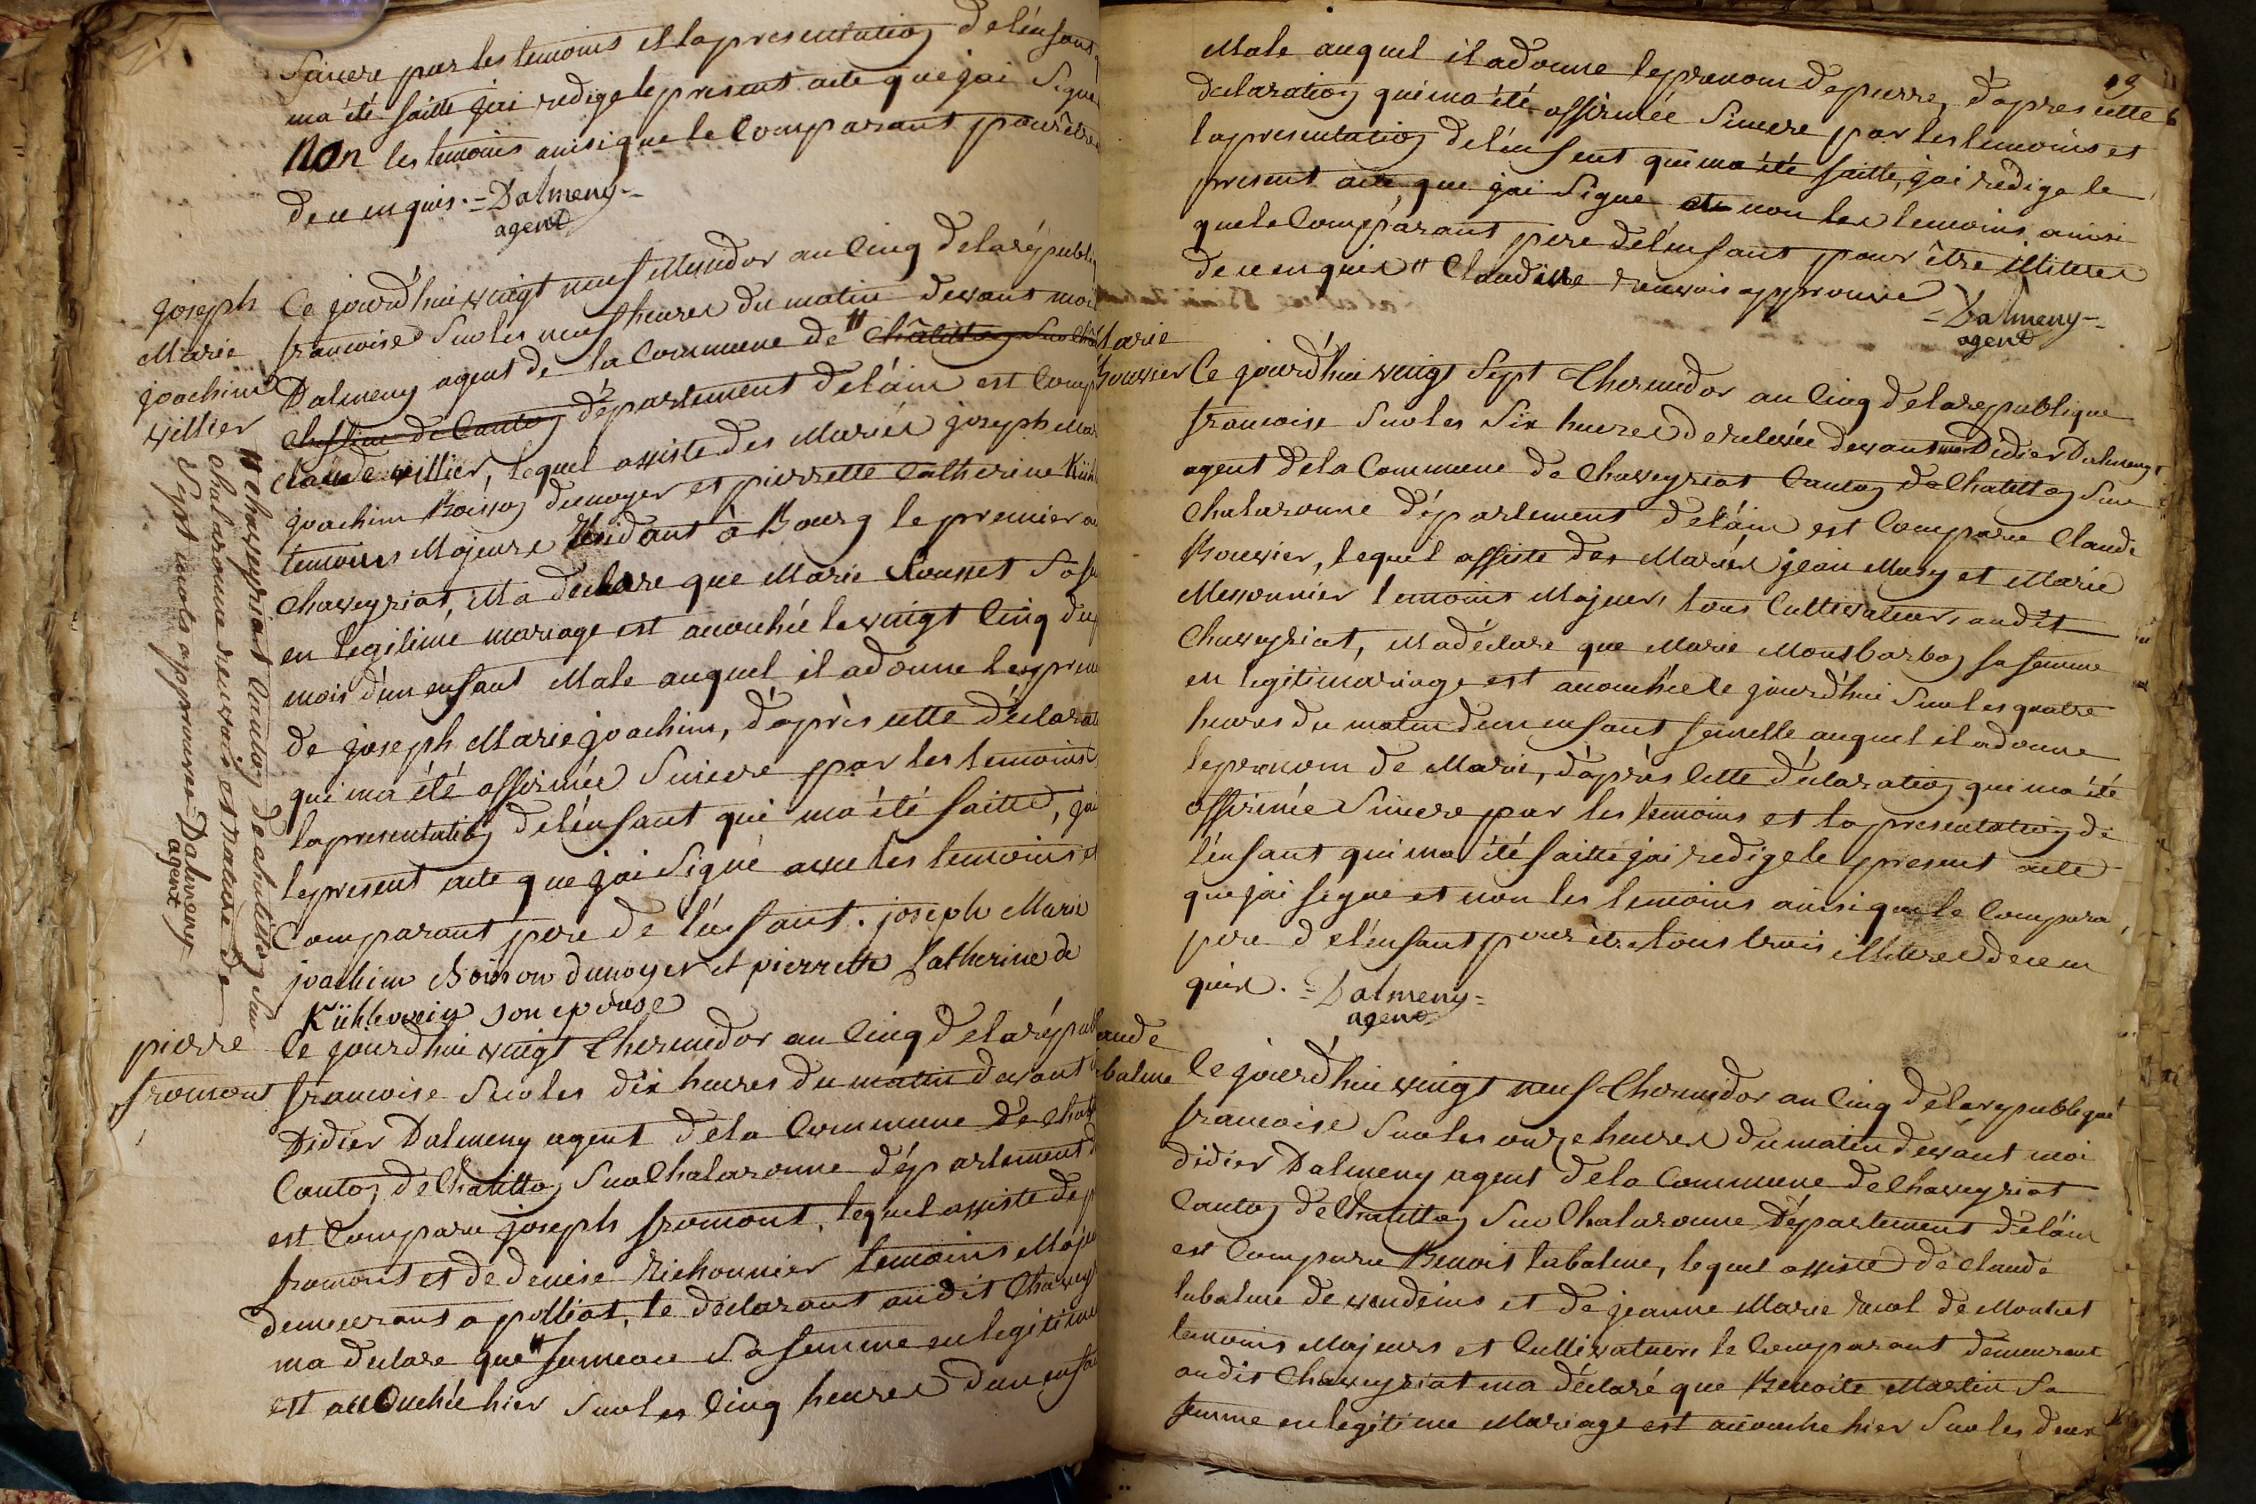 Sincere par les temoins et la presentation de lénfant
ma été faitte jai redige le present acte que jai Signe
Non les temoins ainsi que le Comparant pour être
de ce enquis. = Dalmeny =
agent
joseph
Marie
joachim
villier
Ce jourd'hui vingt neuf Messidor an Cinq de la républi
francoise Sur les neuf heures du matin devant moi
Dalmeny agent de la Commune de " Châtillon Sur Cha
Chef lieu de Canton département de láin est Comp
Claude villier, lequel assiste des Mariés joseph Mar
joachim Boisson dunoyer et pierrette Catherine Küh
temoins Majeurs Residant à Bourg le premier a
Chaveyriat, Ma declare que Marie Rousset Sa fe
en legitime mariage est accouchée le vingt Cinq du
mois d'un enfant Male auquel il a donne les pren
de joseph Marie joachim, d'après cette déclarat
qui ma été affirmée Sincere par les temoins
la presentation de lénfant qui ma été faitte, jai
le present acte que jai Signé avec les temoins et
Comparant pere de lénfant. joseph Marie
joachim Boisson dunoyer et pierrette Catherine de
Kühlewein son epouse
" chaveyriat Canton de chatillon Sur
chalaronne renvois et rature de
Sept mots approuvés = Dalmeny =
agent
pierre
fromont
Ce jourd'hui vingt Thermidor an Cinq de la répub
francoise Sur les dix heures du matin devant
Didier Dalmeny agent de la Commune de Cha
Canton de Chatillon Sur Chalaronne département d
est Comparu joseph fromont, lequel assiste de p
fromont et de denise Richonnier temoins Majeu
demeurant a polliat, le déclarant audit Chavey
ma declare que " Sa femme en legitime
est accouchée hier Sur les Cinq heures d'un enfa
19
Male auquel il a donne le prenom de pierre, d'apres cette
declaration qui ma été affirmée Sincere par les temoins et
la presentation de lénfent qui ma été faitte, jai redige le
present acte, que jai Signe et non les temoins ainsi
que le Comparant pere de lénfant pour être illiteres
de ce enquis " Claudine renvois approuvé
= Dalmeny =
agent
Marie
Bouvier
Ce jourd'hui vingt Sept Thermidor an Cinq de la republique
francoise Sur les Six heures de relevée devant moi Didier Dalmeny
agent de la Commune de Chaveyriat Canton de Chatillon Sur
Chalaronne département de láin est Comparu Claude
Bouvier, lequel assiste des Mariés jean Musy et Marie
Messonnier temoins Majeurs tous Cultivateurs audit
Chaveyriat, Ma déclare que Marie Monsbarbon sa femme
en legitimariage est accouchée le jourd'hui Sur les quatre
heures du matin d'un enfant femelle auquel il a donne
le prenom de Marie, d'après Cette déclaration qui ma été
affirmée Sincere par les temoins et la presentation de
lénfant qui ma été faitte jai redige le present acte
que jai signe et non les temoins ainsi que le Compara
pere de lénfant pour être tous trois illiteres de ce en
quis. = Dalmeny =
agent
aude
balme
Ce jourd'hui vingt neuf Thermidor an Cinq de la republique
francoise Sur les onze heures du matin devant moi
didier Dalmeny agent de la Commune de Chaveyriat
Canton de Chatillon Sur Chalaronne Département de láin
est Comparu Benoit labalme, lequel assiste de Claude
labalme de vandeins et de jeanne Marie de Montcet
temoins Majeurs et Cultivateurs le Comparant demeurant
audit Chaveyriat ma déclaré que Benoite Martin Sa
femme en legitime Mariage est accouche hier Sur les deux